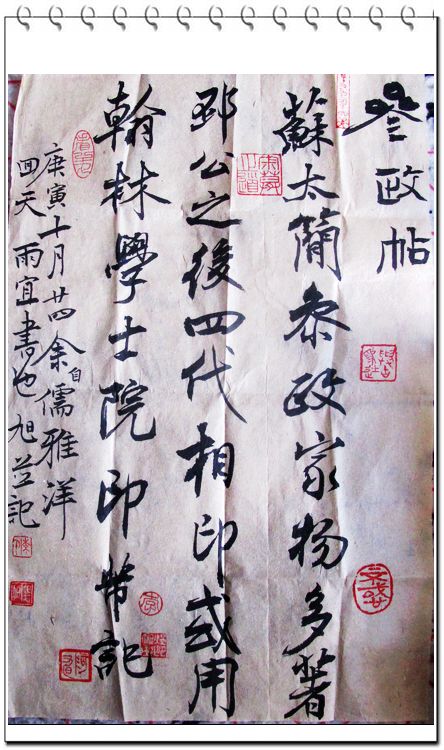 參政帖
蘇太簡參政家物多著
邳公之後四代相印或用
翰林學士院印芾記
庚寅十月廿四余自儒雅洋
回天雨宜書也旭芒記